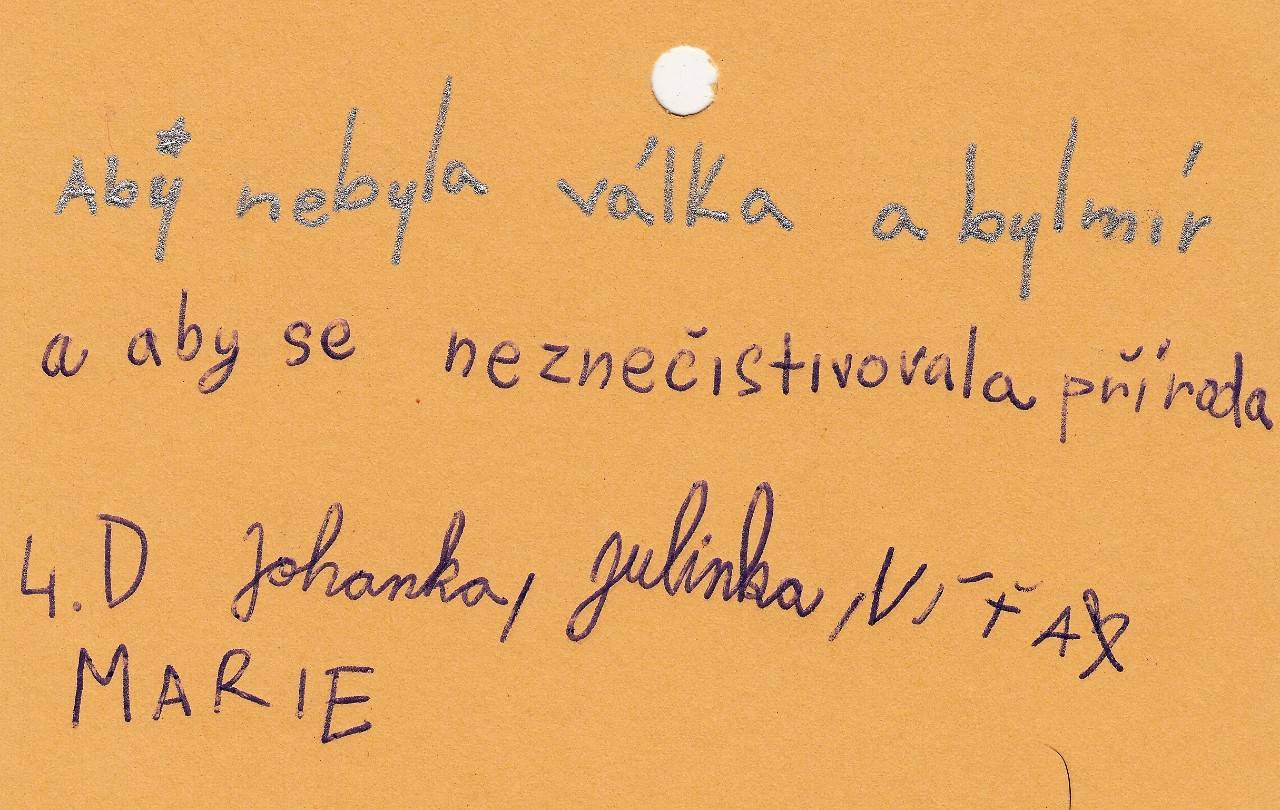 Aby nebyla válka a byl mír
a aby se neznečistivovala příroda
4.D Johanka, Julinka,
MARIE